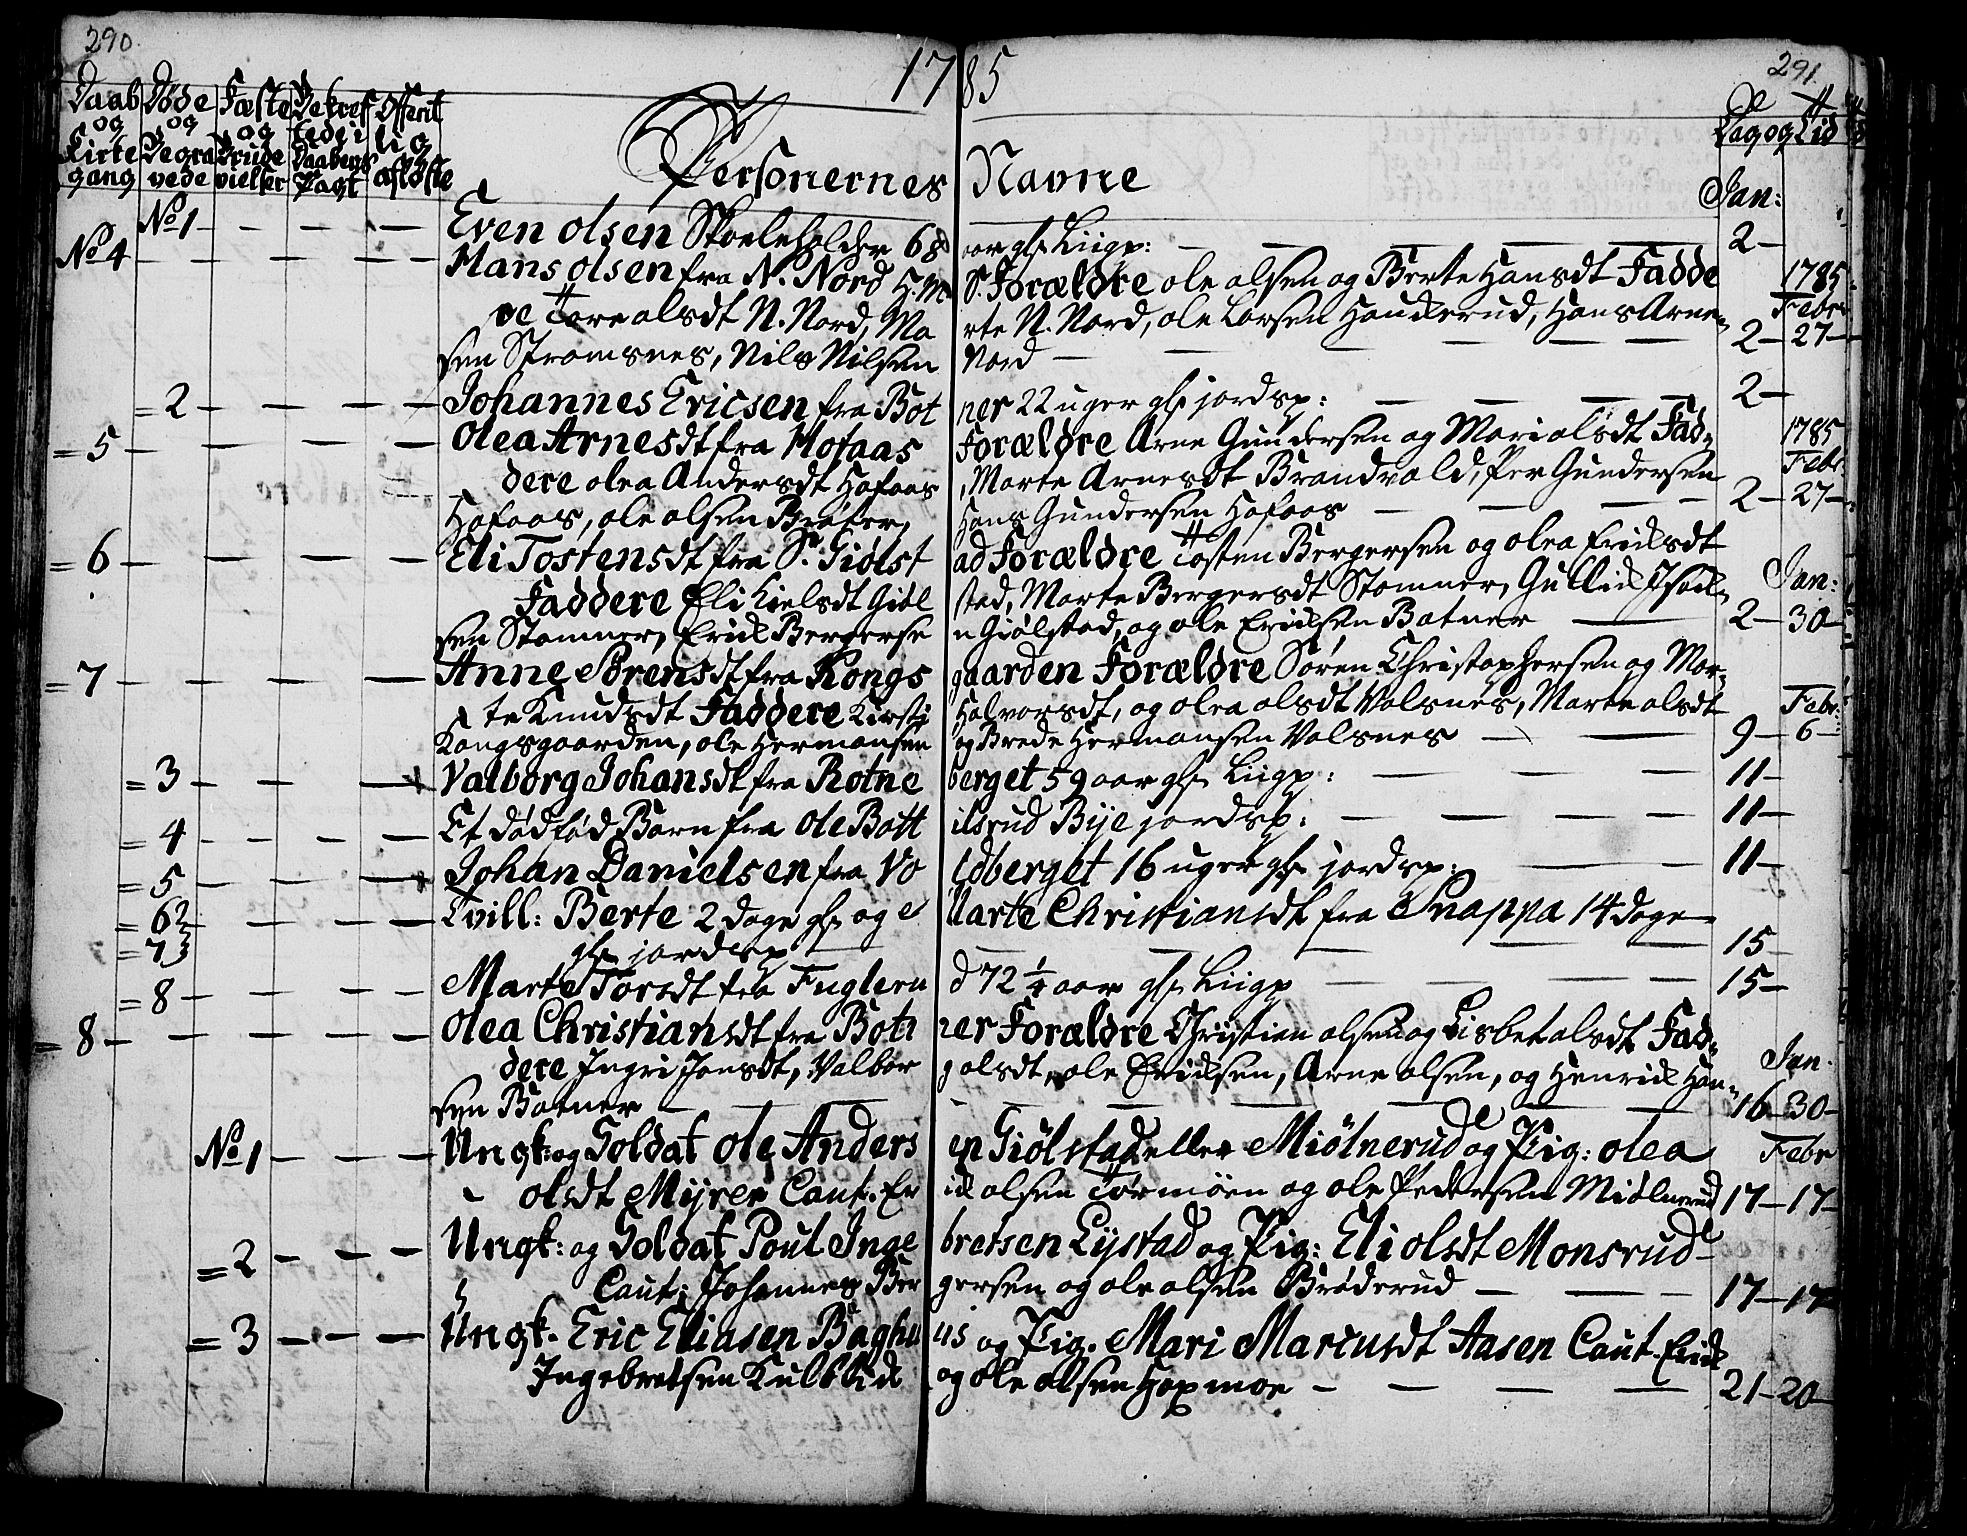 290
1785
291
Daab og Kirke gang
Døde og Begravede
Fæste og Brude vielser
Bekref tede i Daabens Pagt
Offentlig afløste
Personernes Navne
Dag og Tid
Jan:
No 1 Even Olsen Skoeleholder 68 aar gl. Liigp: 2
No 4 Hans Olsen fra N. Nord H.M. S. Forældre Ole Olsen og Berte Hansdt Fadde 1785
re Tore Olsdt N. Nord, Marte N. Nord, Ole Larsen Haukerud, Hans Arne- Febr:
sen Stromsnes, Nils Nilsen Nord 2 27
= 2 Johannes Ericsen fra Botner 22 uger gl. jordsp: 2
= 5 Olea Arnesdt fra Hofaas Forældre Arne Gundersen og Mari Olsdt Fad= 1785
dere Olea Andersdt Hofaas, Marte Arnesdt Brandvold, Per Gundersen Febr
Hofaas, Ole Olsen Bråten, Hans Gundersen Hofaas 2 27
= 6 Eli Tostensdt fra S. Giølstad Forældre Tosten Bergersen og Olea Eriksdt
Faddere Eli Kielsdt Giølstad, Marte Bergersdt Stomner, Gullik Jan:
sen Stomner, Erik Bergersen Giölstad, og Ole Eriksen Batner 2 30
= 7 Anne Sørensdt fra Kongsgaarden Forældre Søren Christophersen og Mar-
te Knudsdt Faddere Kirsti Halvorsdt, og Olea Olsdt Valsnes, Marte Olsdt Febr:
Kongsgaarden, Ole Hermansen og Brede Hermansen Valsnes 9 6
= 3 Valborg Johansdt fra Rotneberget 59 aar gl. Liigp: 11
= 4 Et dødfød Barn fra Ole Bottilsrud Bije jordsp: 11
= 5 Johan Danielsen fra Voldberget 16 uger gl. jordsp: 11
= 6 Tvill: Berte 2 dage gl. og Marte Christiansdt fra Snappa 14 dage
= 7 gl. jordsp 15
= 8 Marte Torsdt fra Fuglerud 72 1/4 aar gl. Liigp 15
= 8 Olea Christiansdt fra Botner Forældre Christien Olsen og Lisbet Olsdt Fad=
dere Ingri Jonsdt, Valborg Olsdt, Ole Eriksen, Arne Olsen, og Henrik Han= Jan.
sen Batner 16 30
No 1 Ungk: og Soldat Ole Andersen Giølstad eller Miølnerud og Pig: Olea Febr
Olsdt Myren Caut. Erik Olsen Tørmöen og Ole Pedersen Miølnerud 17 17
= 2 Ungk: og Soldat Poul Ingebretsen Lystad og Pig: Eli Olsdt Monsrud
Caut: Johannes Bergersen og Ole Olsen Bröderud 17 17
= 3 Ungk. Eric Eliasen Baghuus og Pig. Mari Marcusdt Aasen Caut. Erik
Ingebretsen Kulblik og Ole Olsen Hapmoe 21 20